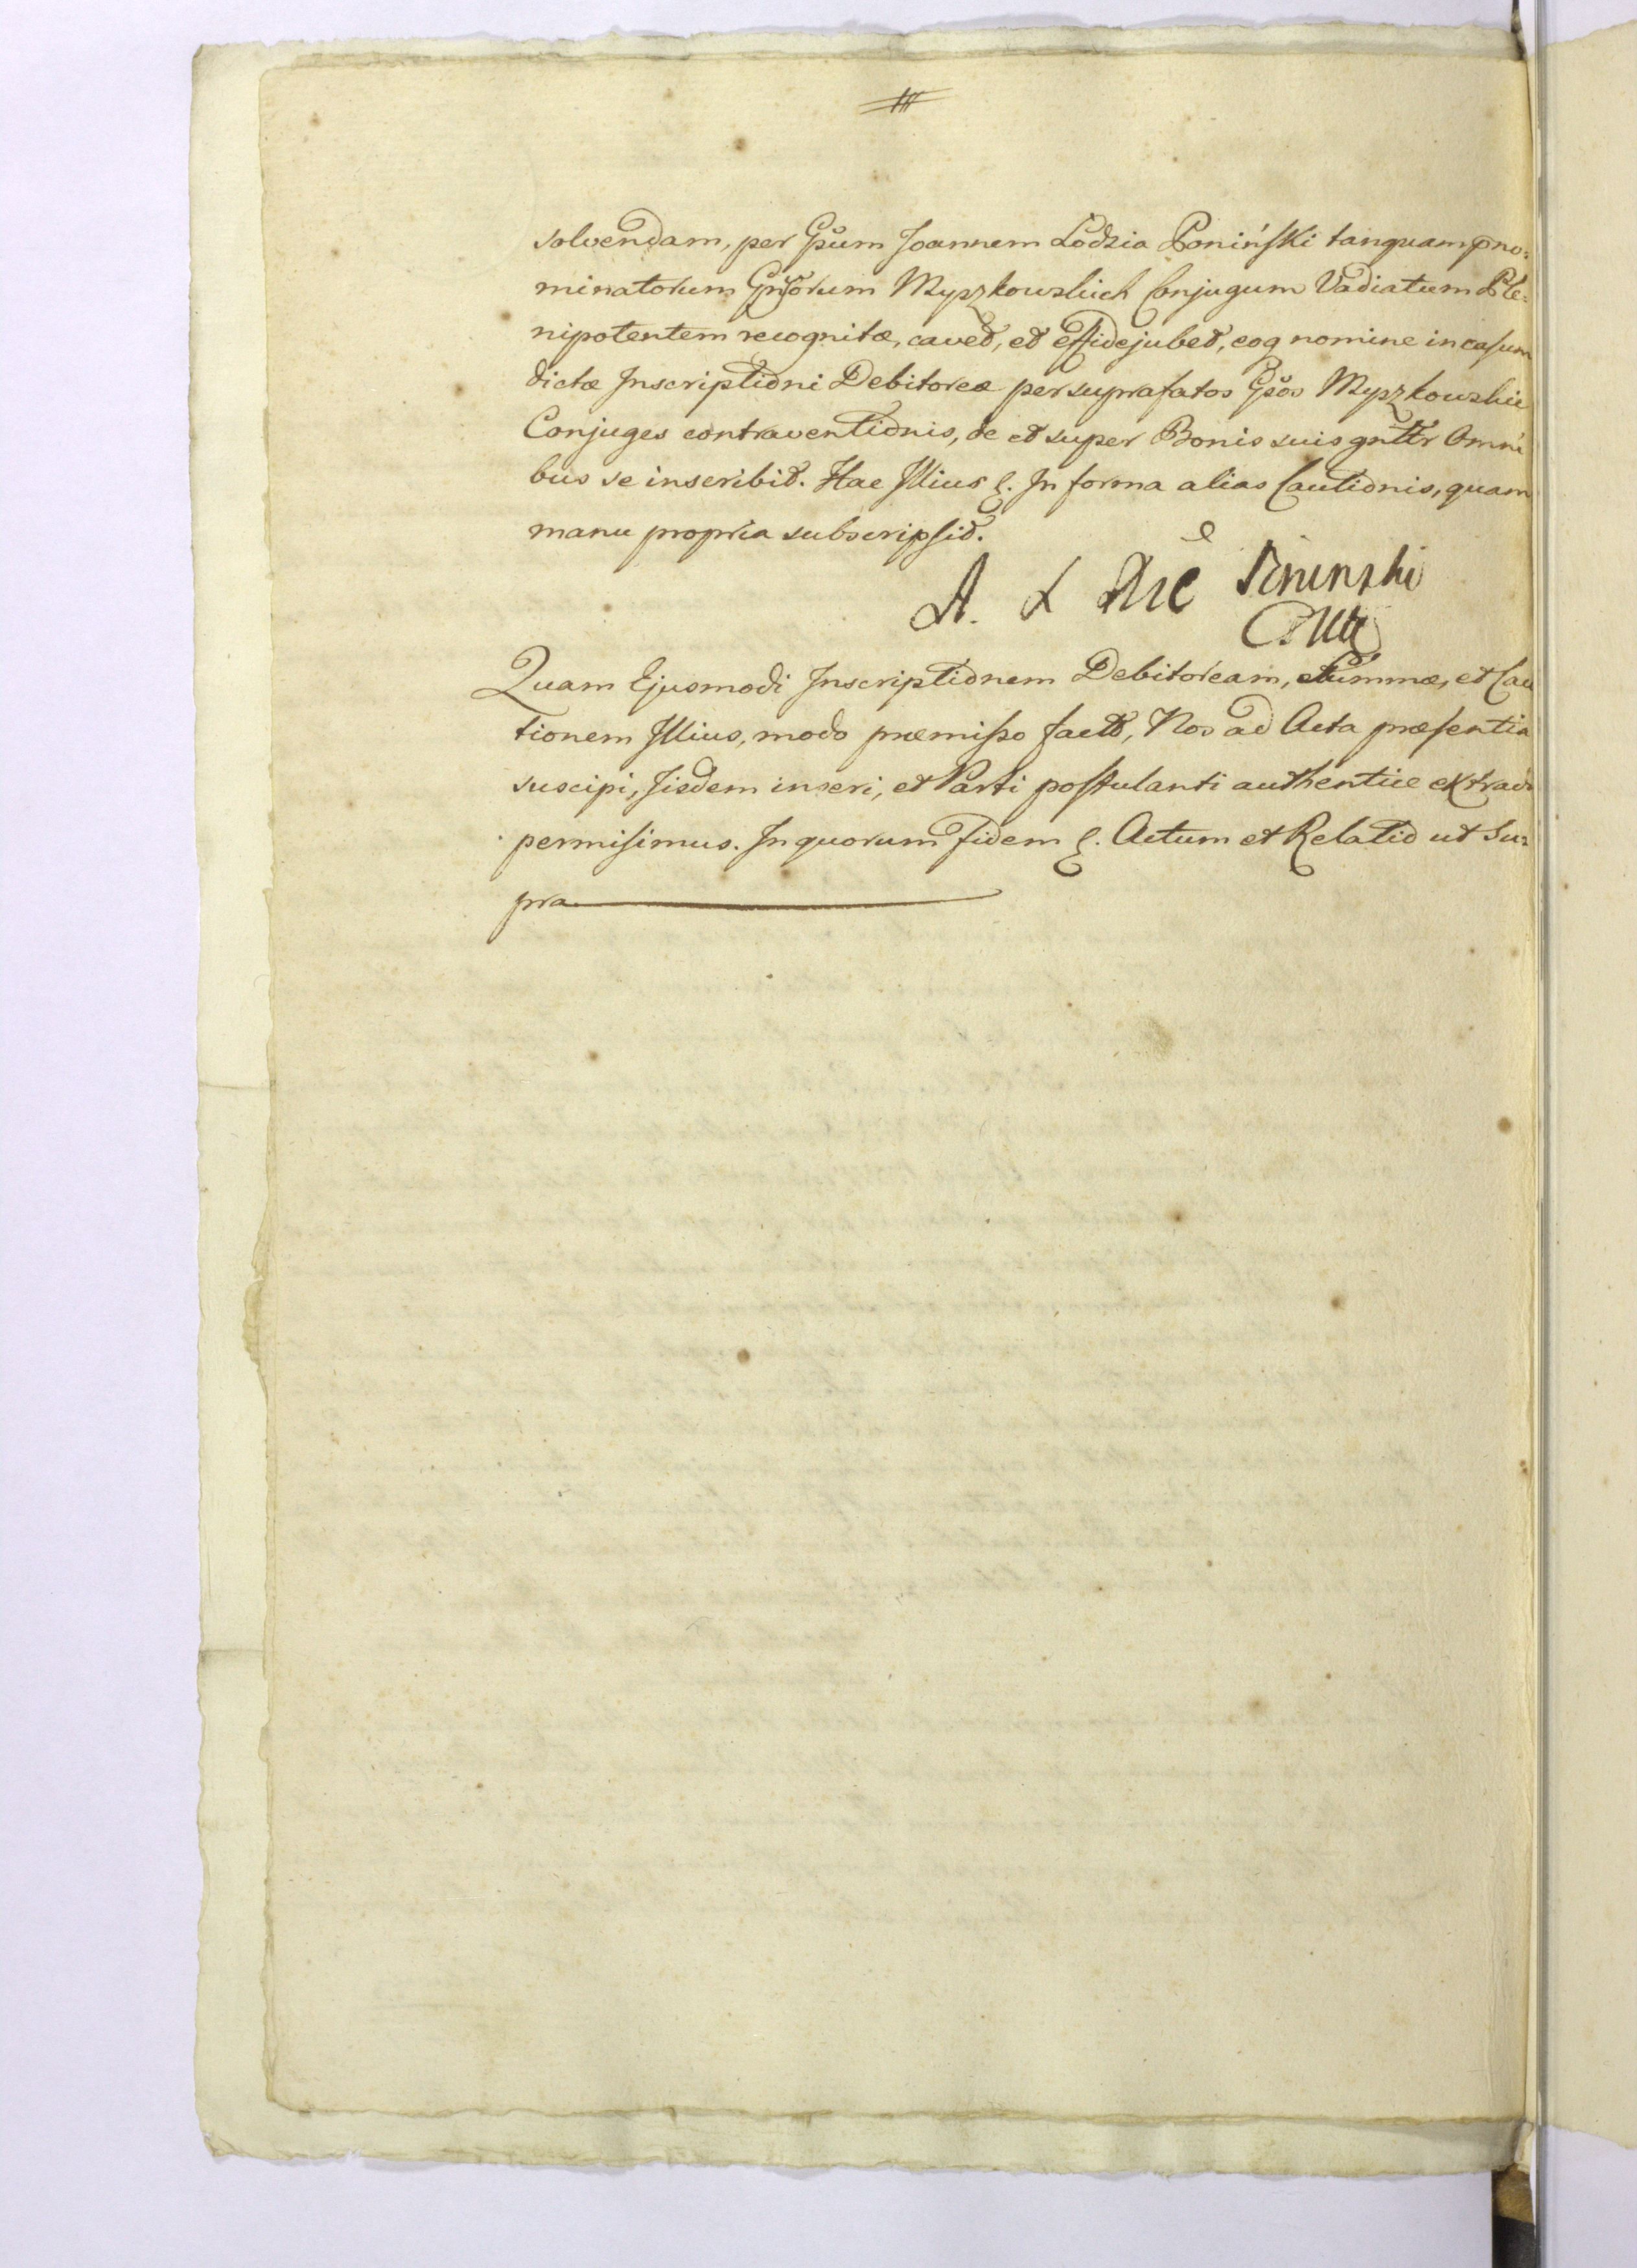 solvendam, per Gsum Joannem Lodzia Poniński tanquam pno=
minatorum Gnsorum Myszkowskich Conjugum Vadiatum Ple=
nipotentem recognitæ, cavet, et effidejubet, eoq nomine in casum
dictæ Inscriptioni Debitoreæ per suprafatos Gsos Myszkowskie
Conjuges contraventionis, de et super Bonis suis gnltr Omni
bus se inscribit. Hac Illius &. In forma alias Cautionis, quam
manu propria subscripsit.
A. Ł Xże Poninski
Quam Ejusmodi Inscriptionem Debitoream, Summæ, et Cau
tionem Illius, modo præmisso facto, Nos ad Acta præsentia
suscipi, Iisdem inseri, et Parti postulanti authentice extradi
permisimus. In quorum fidem &. Actum et Relatio ut Su=
pra